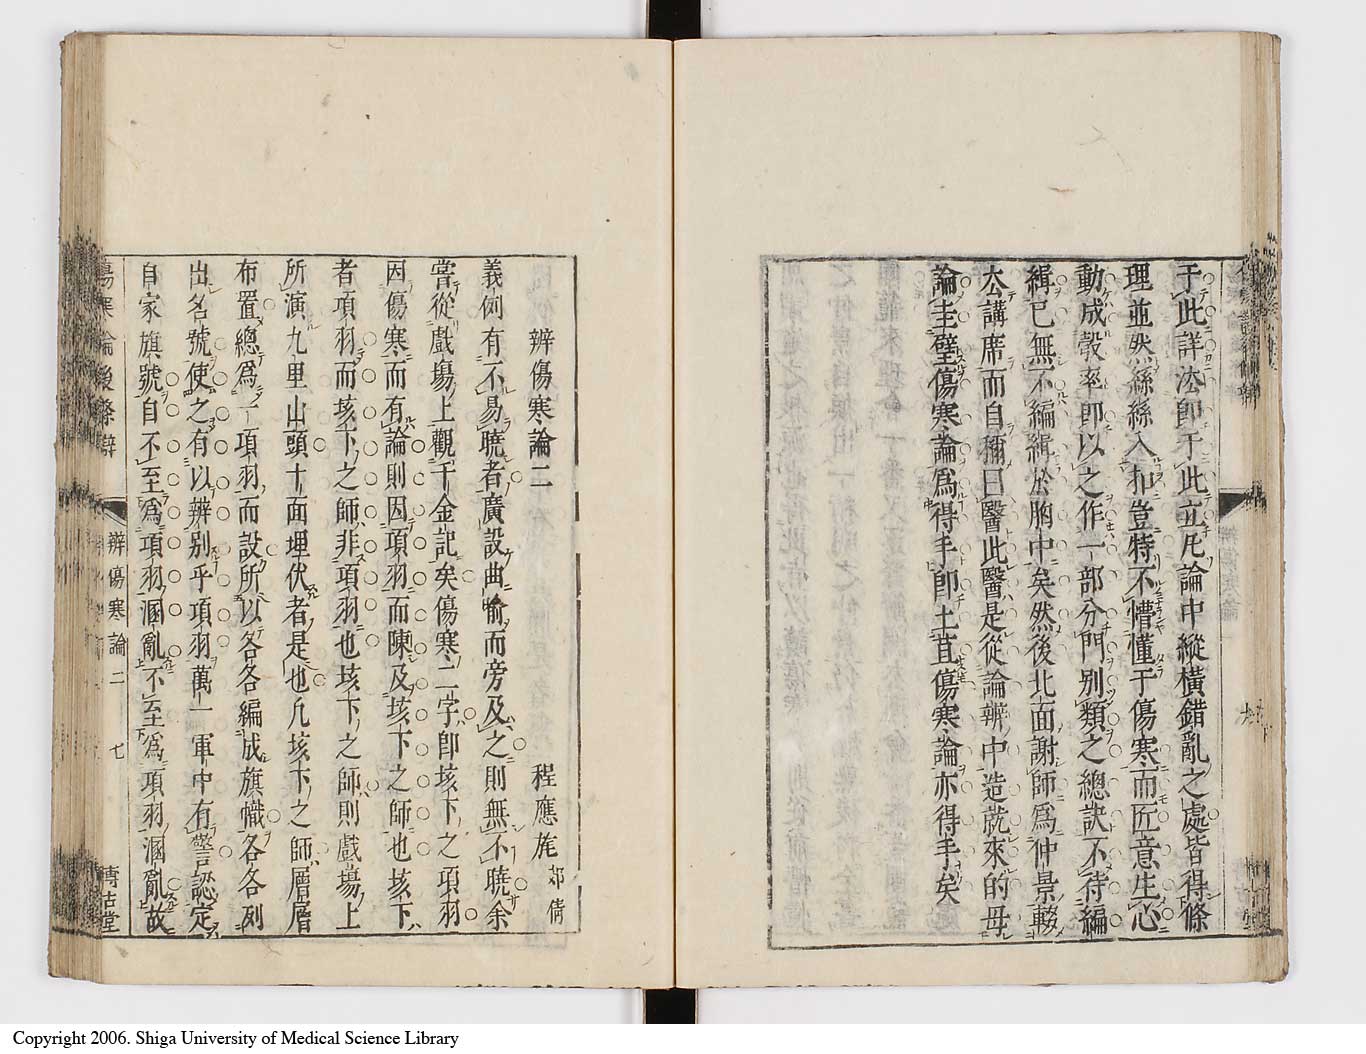 于此詳法卽于此立凡論中縱橫錯亂之處皆得條
理並然絲絲入扣豈特不懵懂于傷寒而匠意生心
動成彀率卽以之作一部分門別類之總訣不待編
緝已無不編緝於胸中矣然後北面謝師爲仲景
公講席而自稱曰醫此醫是從論辨中造就來的毋
論圭璧傷寒論爲得手卽土苴傷寒論亦得手矣
辨傷寒論二
程應旄 郊倩
義例有不易曉者廣設曲喻而旁及之則無不曉余
嘗從戲場上觀千金記矣傷寒二字卽垓下之項羽
因傷寒而有論則因項羽而陳及垓下之師也垓下
者項羽而垓下之師非項羽也垓下之師則戲場上
所演九里山頭十面埋伏者是也凡垓下之師層層
布置總爲一項羽而設所以各各編成旗幟各各列
出名號使之有以辨别乎項羽萬一軍中有警認定
自家旗號自不至爲項羽溷亂不至爲項羽溷亂故
傷寒論後條辯 辨傷寒論二 七 博古堂
Copyright 2006. Shiga University of Medical Science Library